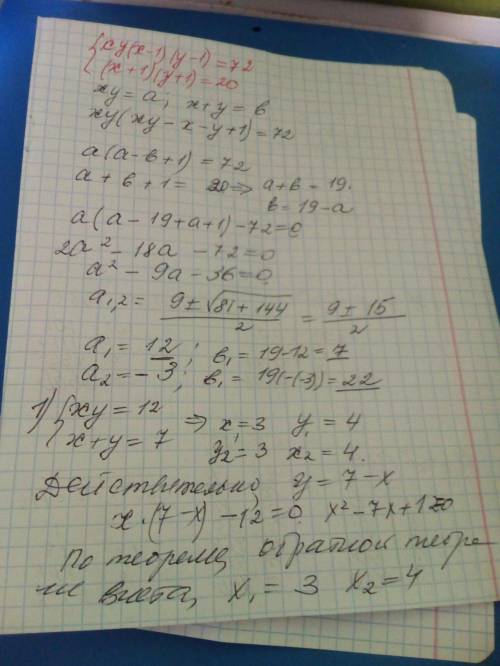 {xy(x-1)(y-1)=72
{(x+1)(y+1)=20
xy=a; x+y=в
xy(xy-x-y+1)=72
a(a-в+1)=72
a+в+1= 20 ⇒ a+в=19.
в=19-a
a(a-19+a+1)-72=0
2a²-18a-72=0
a²-9a-36=0
a₁,₂= (9±√(81+144))/2 = (9±15)/2
a₁=12; в₁=19-12=7
a₂=-3; в₁=19(-(-3))=22
1) {xy=12
{x+y=7 ⇒ x₁=3 y₁=4
y₂=3 x₂=4.
Действительно, y=7-x
x·(7-x)-12=0 x²-7x+12=0
По теореме, обратной теоре-
ме Виета, x₁=3 x₂=4